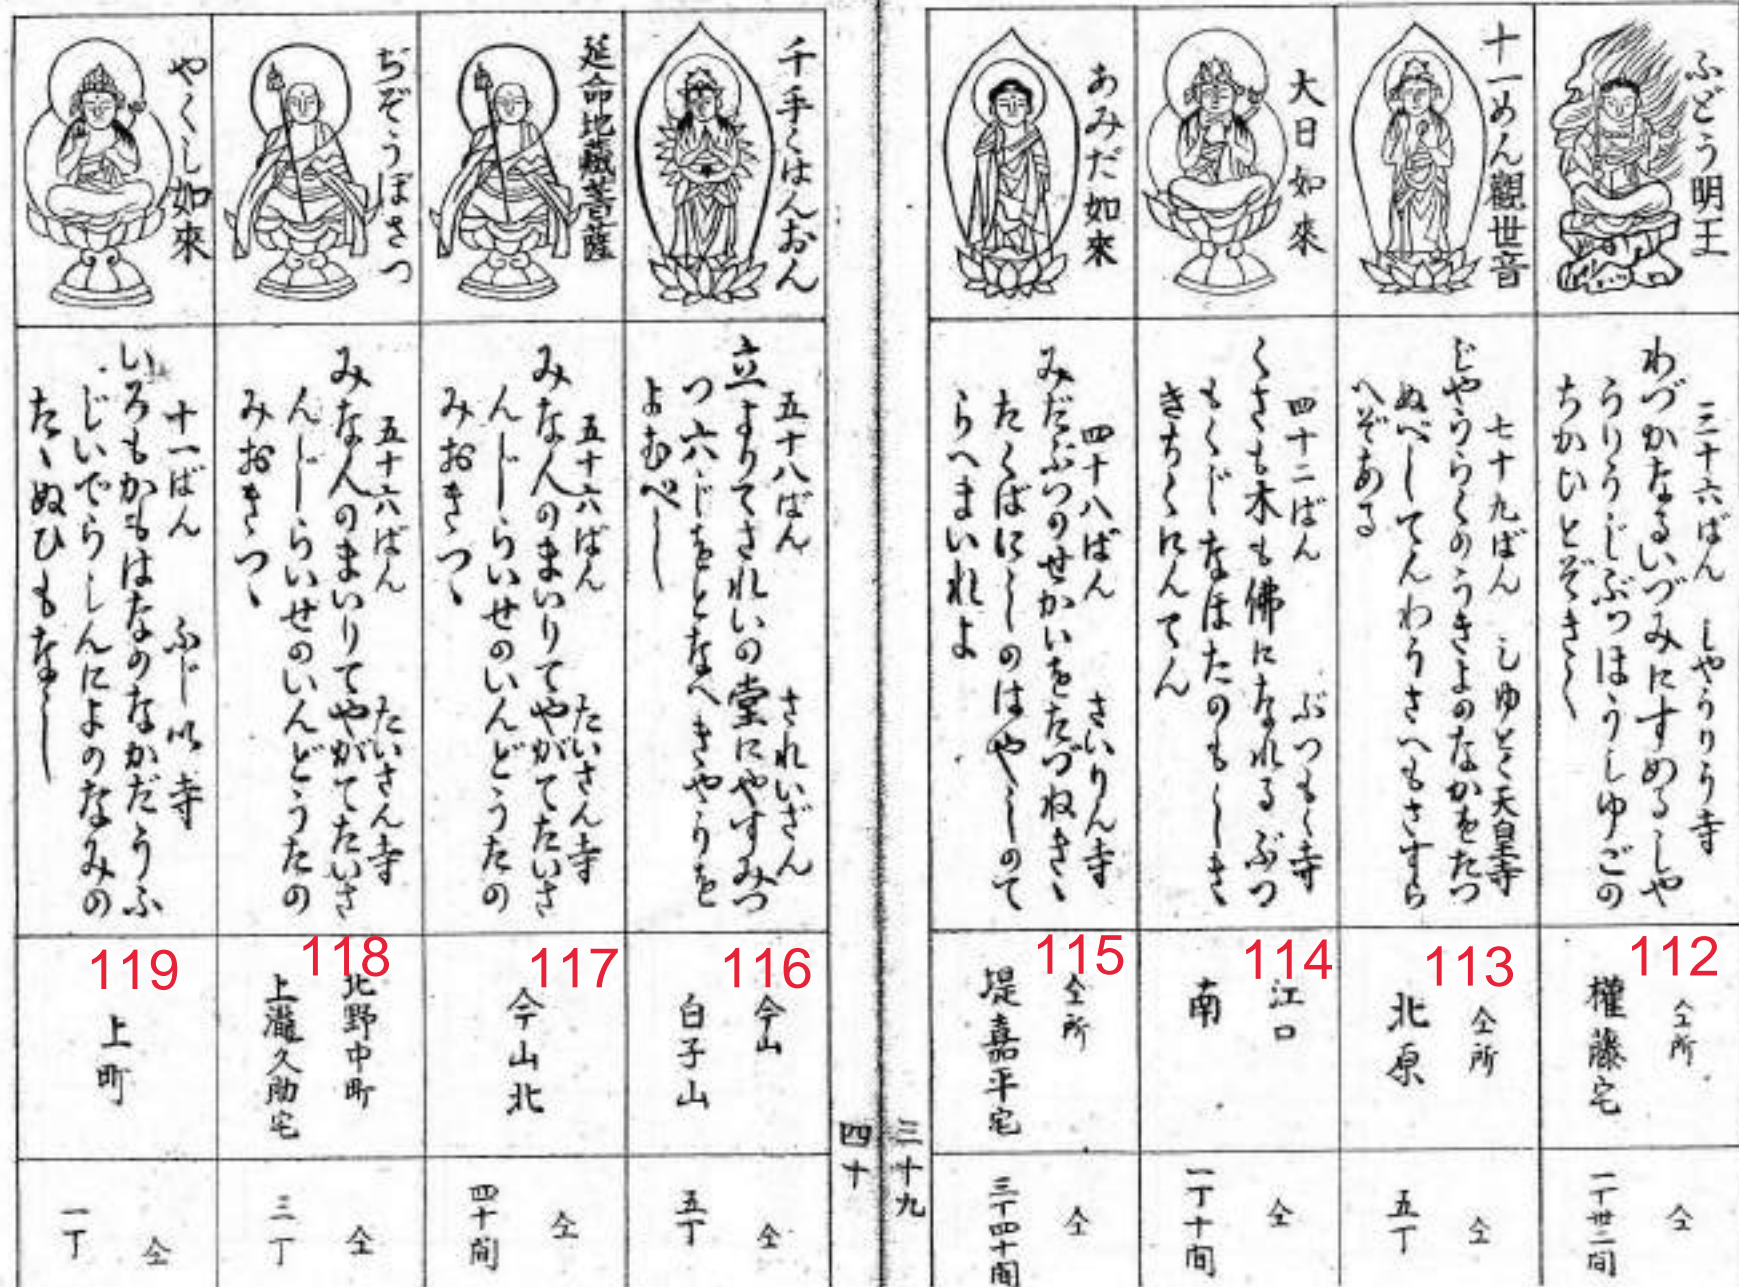 ふどう明王
三十六ばん　しやうりう寺
わづかなるいづみにすめるしや
うりうじぶつほうしゆごの
ちかひとぞきく
112
仝所
權藤宅
仝
一丁卅二間
十一めん觀世音
七十九ばん　しゆとく天皇寺
じやうらくのうきよのなかをたつ
ぬべしてんわうさへもさすら
へぞある
113
仝所
北原
仝
五丁
大日如來
四十二ばん　ぶつもく寺
くさも木も佛になれるぶつ
もくじなほたのもしき
きちくにんてん
114
江口
南
仝
一丁十間
あみだ如來
四十八ばん　さいりん寺
みだぶつのせかいをたづねきゝ
たくばにしのはやしのて
らへまいれよ
115
仝所
堤嘉平宅
仝
三丁四十間
三十九
四十
千手くはんおん
五十八ばん　されいざん
立よりてされいの堂にやすみつ
つ六じをとなへきやうを
よむべし
116
今山
白子山
仝
五丁
延命地藏菩薩
五十六ばん　たいさん寺
みな人のまいりてやがてたいさ
んじらいせのいんどうたの
みおきつゝ
117
今山北
仝
四十間
ぢぞうぼさつ
五十六ばん　たいさん寺
みな人のまいりてやがてたいさ
んじらいせのいんどうたの
みおきつゝ
118
北野中町
上瀧久助宅
仝
三丁
やくし如來
十一ばん　ふじ井寺
いろもかもはなのなかだうふ
じいでらしんによのなみの
たゝぬひもなし
119
上町
仝
一丁